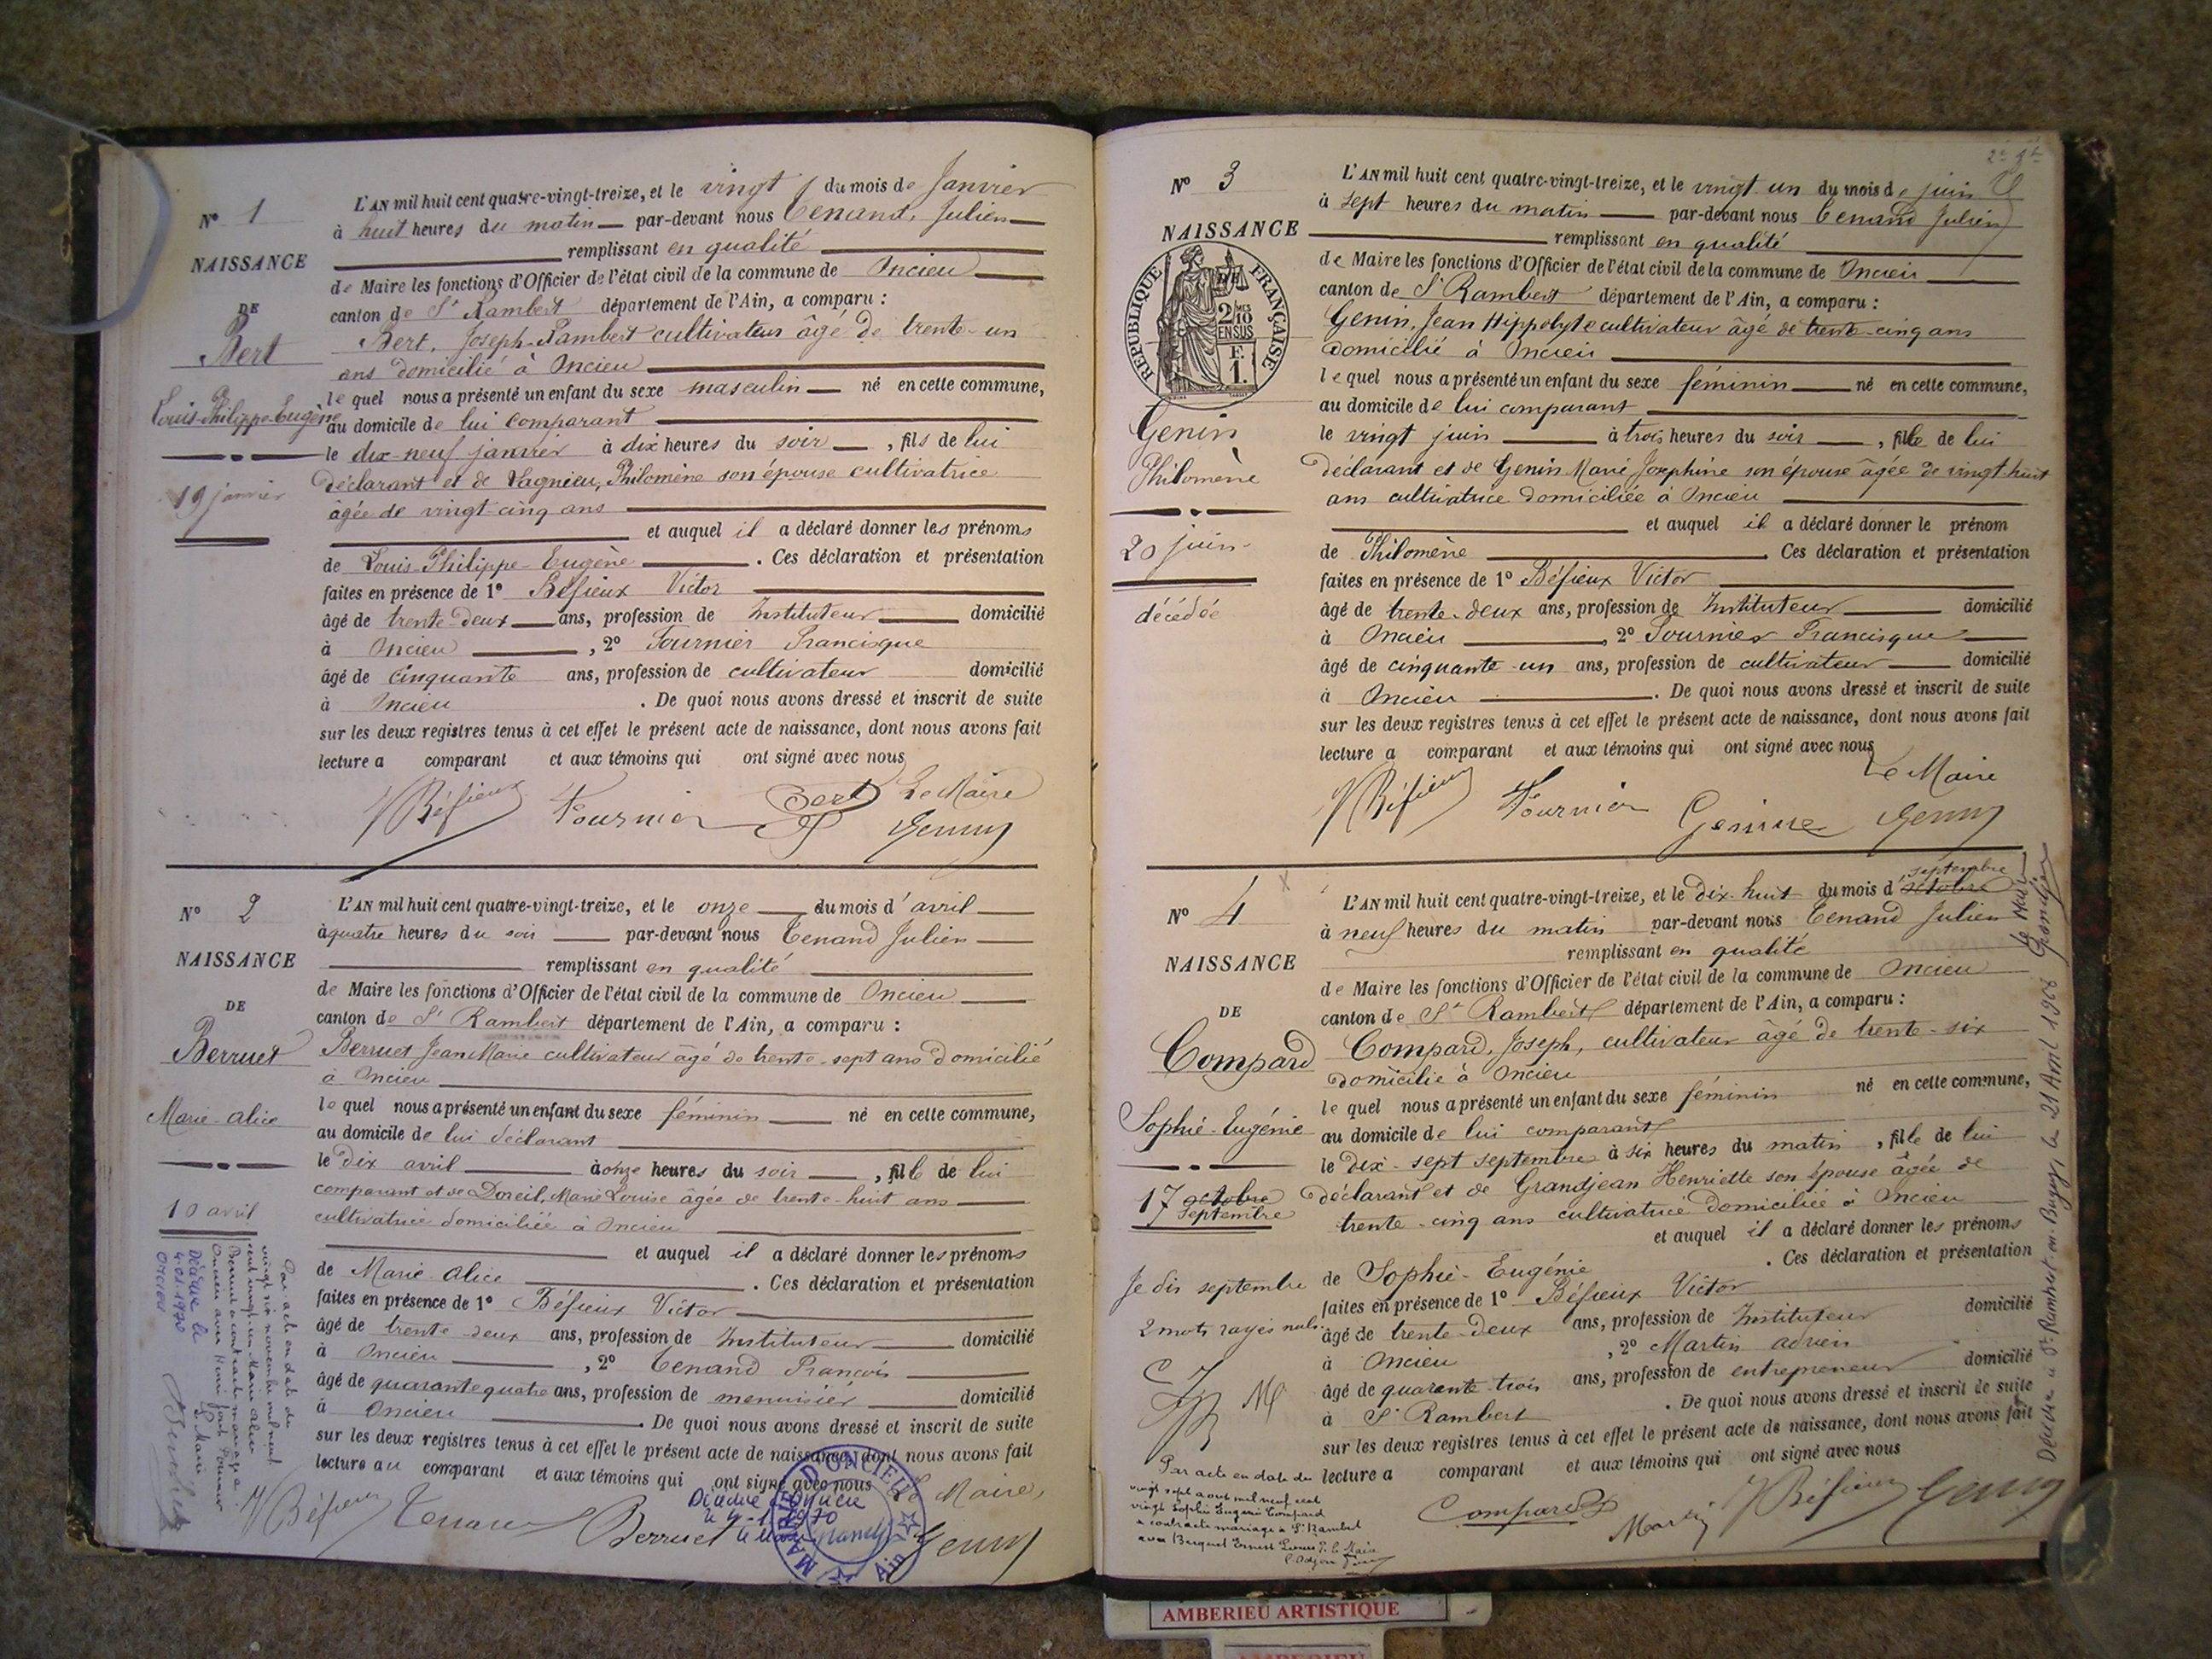 N° 1
NAISSANCE
DE
Bert
Louis-Philippe-Eugène
19 janvier
L'AN mil huit cent quatre-vingt-treize, et le vingt du mois de Janvier
à huit heures du matin par-devant nous Tenand, Julien
remplissant en qualité
de Maire les fonctions d'Officier de l'état civil de la commune de Oncieu
canton de St Rambert département de l'Ain, a comparu :
Bert, Joseph-Rambert cultivateur âgé de trente-un
ans domicilié à Oncieu
lequel nous a présenté un enfant du sexe masculin né en cette commune,
au domicile de lui comparant
le dix-neuf janvier à dix heures du soir, fils de lui
déclarant et de Vagnieu, Philomène son épouse cultivatrice
âgée de vingt cinq ans
et auquel il a déclaré donner les prénoms
de Louis-Philippe-Eugène. Ces déclaration et présentation
faites en présence de 1° Béfieux Victor
âgé de trente-deux ans, profession de Instituteur domicilié
à Oncieu, 2° Fournier Francisque
âgé de cinquante ans, profession de cultivateur domicilié
à Oncieu. De quoi nous avons dressé et inscrit de suite
sur les deux registres tenus à cet effet le présent acte de naissance, dont nous avons fait
lecture a comparant et aux témoins qui ont signé avec nous
V Béfieux Fournier Bert Le Maire
N° 2
NAISSANCE
DE
Berruet
Marie-Alice
10 avril
L'AN mil huit cent quatre-vingt-treize, et le onze du mois d'avril
à quatre heures du soir par-devant nous Tenand Julien
remplissant en qualité
de Maire les fonctions d'Officier de l'état civil de la commune de Oncieu
canton de St Rambert département de l'Ain, a comparu :
Berruet Jean Marie cultivateur âgé de trente-sept ans domicilié
à Oncieu
lequel nous a présenté un enfant du sexe féminin né en cette commune,
au domicile de lui déclarant
le dix avril à onze heures du soir, fille de lui
comparant et de Doreil, Marie Louise âgée de trente-huit ans
cultivatrice domiciliée à Oncieu
et auquel il a déclaré donner les prénoms
de Marie Alice. Ces déclaration et présentation
faites en présence de 1° Béfieux Victor
âgé de trente-deux ans, profession de Instituteur domicilié
à Oncieu, 2° Tenand François
âgé de quarante quatre ans, profession de menuisier domicilié
à Oncieu. De quoi nous avons dressé et inscrit de suite
sur les deux registres tenus à cet effet le présent acte de naissance, dont nous avons fait
lecture au comparant et aux témoins qui ont signé avec nous Le Maire,
V Béfieux Tenand Berruet
Par acte en date du
vingt six novembre mil neuf
cent vingt-un Marie Alice
Berruet a contracté mariage à
Oncieu avec
Le Maire
Décédée le
4.01.1970
ONCIEU
Décédée à Oncieu
le 4-1-1970
le Maire
MAIRIE D'ONCIEU
Ain
N° 3
NAISSANCE
RÉPUBLIQUE FRANÇAISE
DE
2/10MES
EN SUS
F.
1.
Genin
Philomène
20 juin
décédée
L'AN mil huit cent quatre-vingt-treize, et le vingt-un du mois de juin
à sept heures du matin par-devant nous Tenand Julien
remplissant en qualité
de Maire les fonctions d'Officier de l'état civil de la commune de Oncieu
canton de St Rambert département de l'Ain, a comparu :
Genin, Jean Hippolyte cultivateur âgé de trente-cinq ans
domicilié à Oncieu
lequel nous a présenté un enfant du sexe féminin né en cette commune,
au domicile de lui comparant
le vingt juin à trois heures du soir, fille de lui
déclarant et de Genin Marie Josephine son épouse âgée de vingt huit
ans cultivatrice domiciliée à Oncieu
et auquel il a déclaré donner le prénom
de Philomène. Ces déclaration et présentation
faites en présence de 1° Béfieux Victor
âgé de trente-deux ans, profession de Instituteur domicilié
à Oncieu, 2° Fournier Francisque
âgé de cinquante-un ans, profession de cultivateur domicilié
à Oncieu. De quoi nous avons dressé et inscrit de suite
sur les deux registres tenus à cet effet le présent acte de naissance, dont nous avons fait
lecture a comparant et aux témoins qui ont signé avec nous
Le Maire
V Béfieux Fournier
N° 4
NAISSANCE
DE
Compard
Sophie-Eugénie
17 octobre
septembre
Je dis septembre
2 mots rayés nuls.
L'AN mil huit cent quatre-vingt-treize, et le dix-huit du mois d'octobre septembre
à neuf heures du matin par-devant nous Tenand Julien
remplissant en qualité
de Maire les fonctions d'Officier de l'état civil de la commune de Oncieu
canton de St Rambert département de l'Ain, a comparu :
Compard, Joseph, cultivateur âgé de trente-six
domicilié à Oncieu
lequel nous a présenté un enfant du sexe féminin né en cette commune,
au domicile de lui comparant
le dix-sept septembre à six heures du matin, fille de lui
déclarant et de Grandjean Henriette son épouse âgée de
trente-cinq ans cultivatrice domiciliée à Oncieu
et auquel il a déclaré donner les prénoms
de Sophie-Eugénie. Ces déclaration et présentation
faites en présence de 1° Béfieux Victor
âgé de trente-deux ans, profession de Instituteur domicilié
à Oncieu, 2° Martin Adrien
âgé de quarante-trois ans, profession de entrepreneur domicilié
à St Rambert. De quoi nous avons dressé et inscrit de suite
sur les deux registres tenus à cet effet le présent acte de naissance, dont nous avons fait
lecture a comparant et aux témoins qui ont signé avec nous
Compard Martin V Béfieux
Par acte en date du
vingt sept août mil neuf cent
vingt Sophie Eugénie Compard
a contracté mariage à St Rambert
avec Ernest
Décédée à St Rambert-en-Bugey, le 21 Avril 1908
Le Maire
AMBERIEU ARTISTIQUE
AMBERIEU